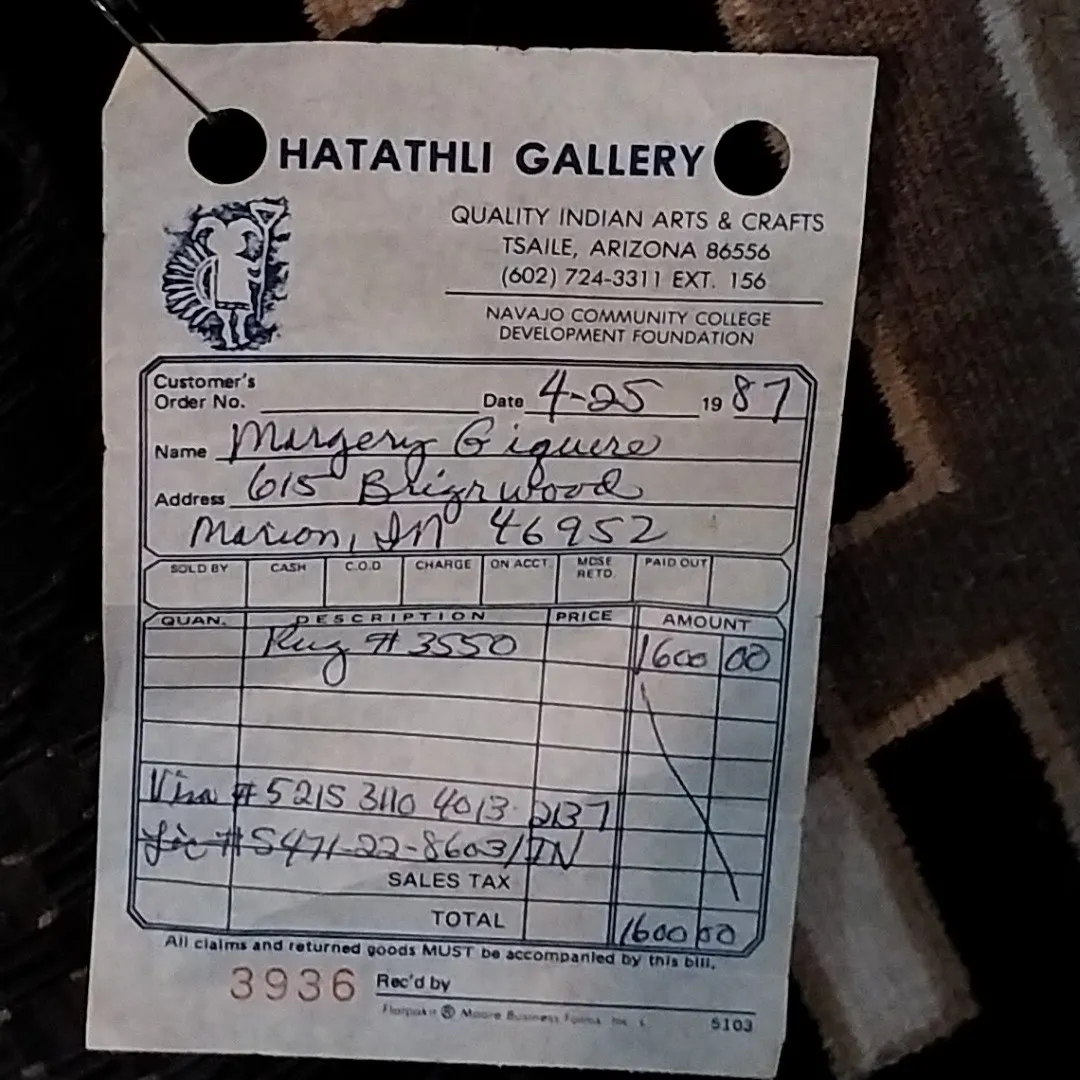 HATATHLI GALLERY
QUALITY INDIAN ARTS & CRAFTS
TSAILE, ARIZONA 86556
(602) 724-3311 EXT. 156
NAVAJO COMMUNITY COLLEGE
DEVELOPMENT FOUNDATION
Customer's
Order No. Date 4-25 19 87
Name Margery Giguere
Address 615 Briarwood
Marion, IN 46952
SOLD BY CASH C.O.D CHARGE ON ACCT. MDSE RETD. PAID OUT
QUAN. DESCRIPTION PRICE AMOUNT
Rug # 3550 1600 00
Visa # 5215 3110 4013 2137
Lic # 5471-22-8603/IN
SALES TAX
TOTAL 1600 00
All claims and returned goods MUST be accompanied by this bill.
3936 Rec'd by
Moore Business Forms, Inc.
5103